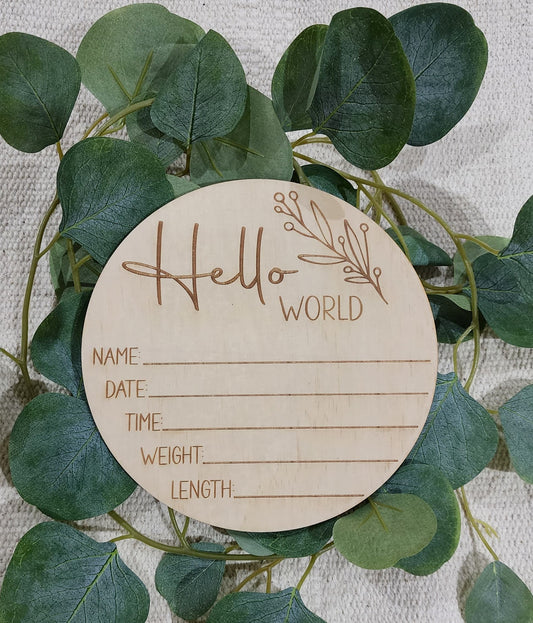 Hello
WORLD
NAME:
DATE:
TIME:
WEIGHT:
LENGTH: